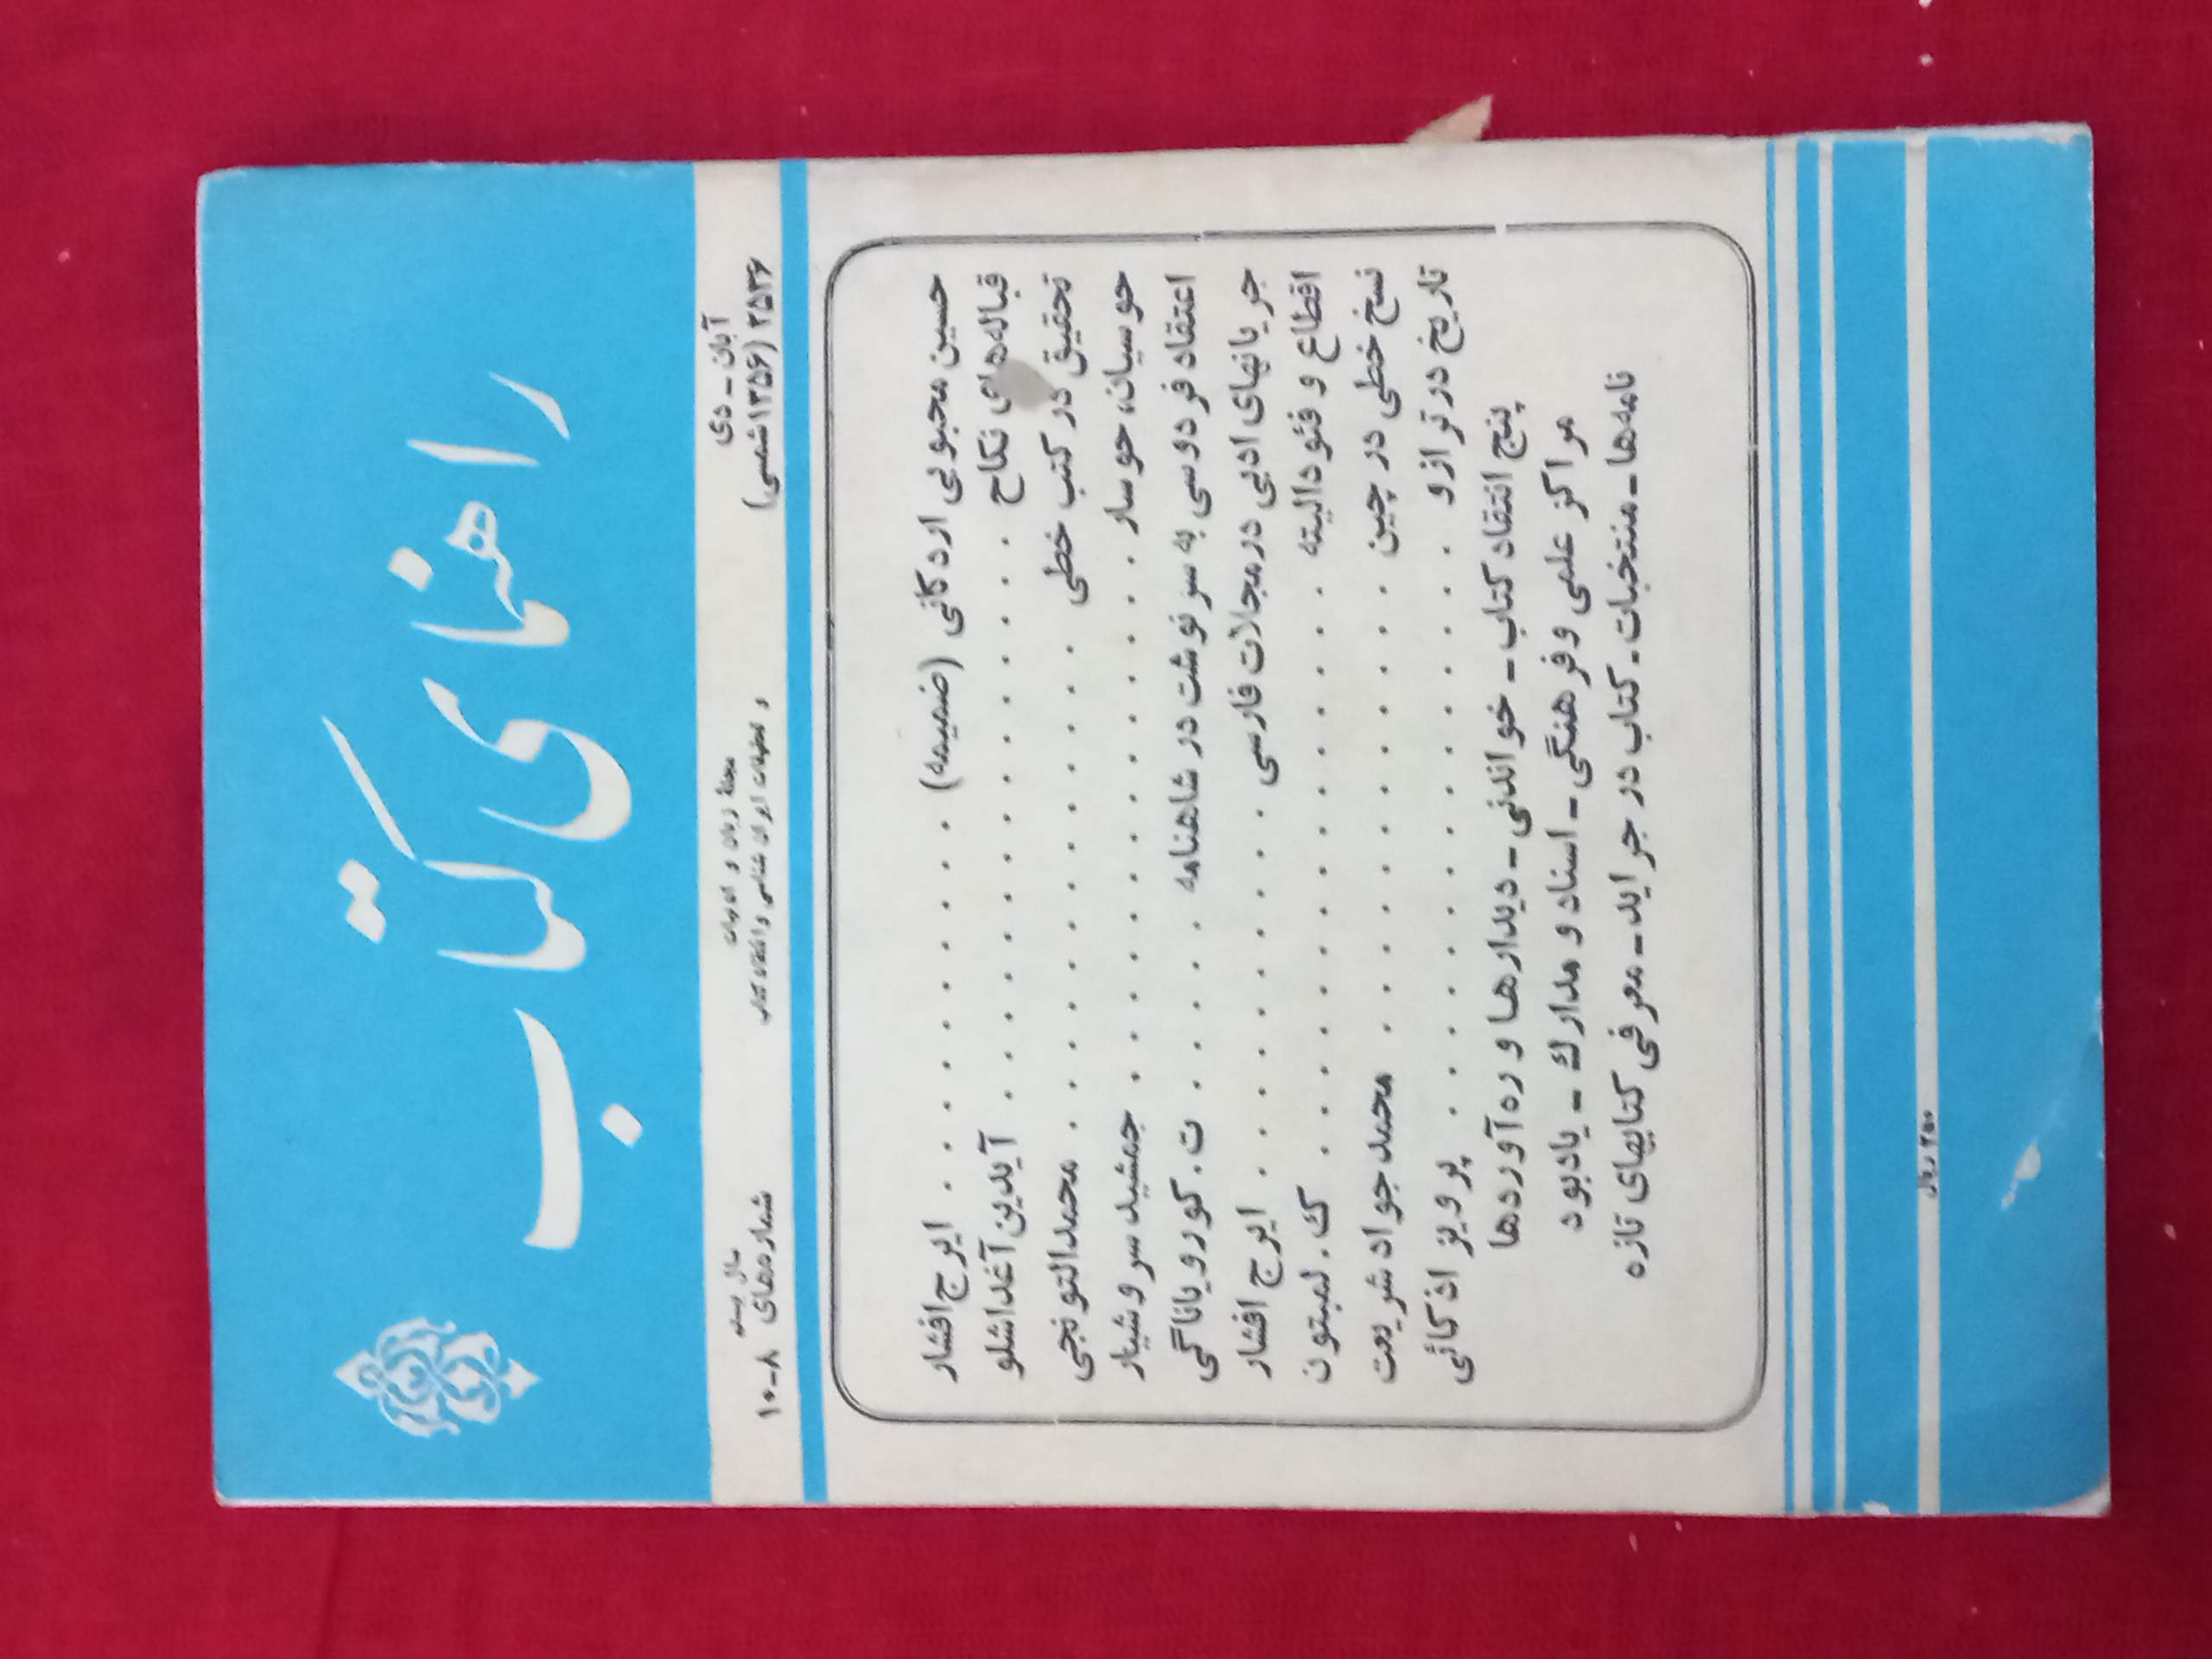 راهنمای کتاب
آبان - دی
۲۵۳۶ (۱۳۵۶ شمسی)
مجلهٔ زبان و ادبیات
و تحقیقات ایران شناسی و انتقاد کتاب
سال بیستم
شماره‌های ۸-۱۰
حسین محبوبی اردکانی (ضمیمه) . . . . . . ایرج افشار
قباله‌های نکاح . . . . . . آیدین آغداشلو
تحقیق در کتب خطی . . . . . . محمد التونجی
حوسیان، حوسار . . . . . . جمشید سروشیار
اعتقاد فردوسی به سرنوشت در شاهنامه . . . . . . ت. کورویاناگی
جریانهای ادبی در مجلات فارسی . . . . . . ایرج افشار
اقطاع و فئودالیته . . . . . . ک. لمبتون
نسخ خطی در چین . . . . . . محمد جواد شریعت
تاریخ در ترازو . . . . . . پرویز اذکائی
پنج انتقاد کتاب - خواندنی - دیدارها و ره‌آوردها
مراکز علمی و فرهنگی - اسناد و مدارک - یادبود
نامه‌ها - منتخبات - کتاب در جراید - معرفی کتابهای تازه
۲۵۰ ریال